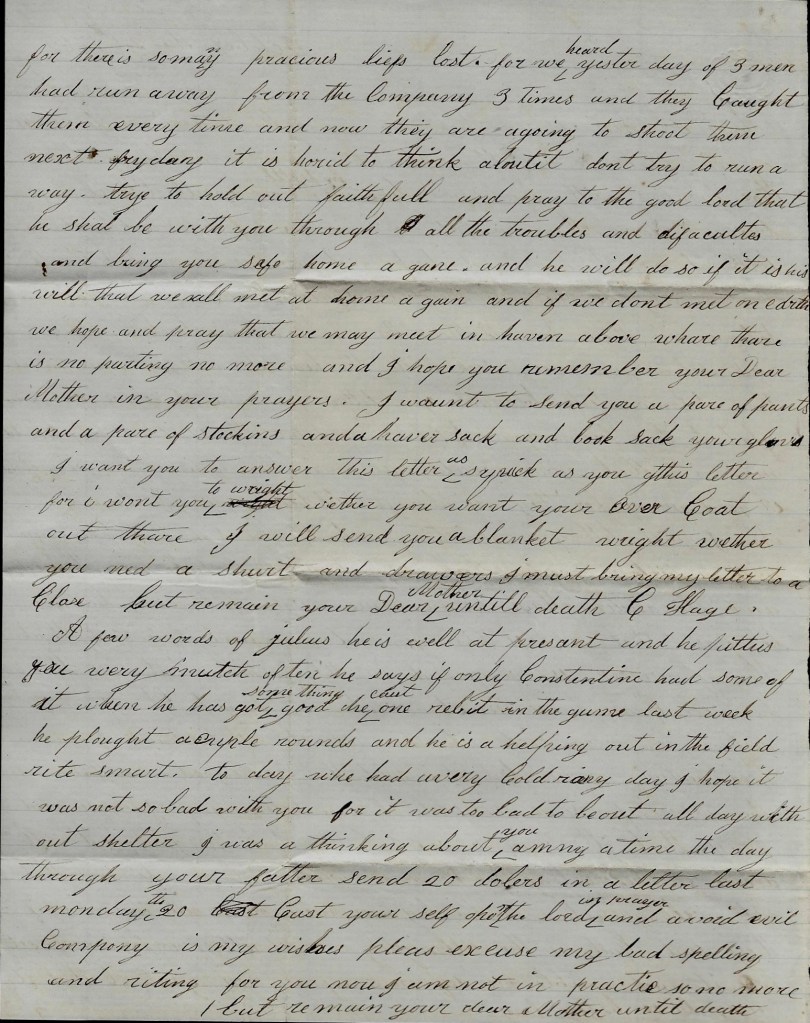 for there is so many pracious liefs lost. for we heard yester day of 3 men
had run away from the Company 3 times and they Caught
them every time and now they are agoing to shoot them
next fryday it is horid to think aboutit dont try to run a
way. trye to hold out faith full and pray to the good lord that
he shal be with you through all the troubles and difacultes
and bring you safe home a gane. and he will do so if it is his
will that we all met at home a gain and if we dont met on edrth
we hope and pray that we may meet in haven above whare thare
is no parting no more and I hope you remember your Dear
Mother in your prayers. I waunt to send you a pare of pants
and a pare of stockins and a haver sack and book sack your glovs
I want you to answer this letter as as you this letter
for i wont you to wright wether you want your over Coat
out thare I will send you a blanket wright wether
you ned a shurt and drawers I must bring my letter to a
Close but remain your Dear Mother untill death C Hage.
A few words of julius he is well at presant and he pittus
you wery mutch often he says if only Constentine had some of
it when he has got some thing good he caut one rebit in the gume last week
he plought a cuple rounds and he is a helping out in the field
rite smart. to day whe had avery Cold riany day I hope it
was not so bad with you for it was too bad to beout all day with
out shelter I was a thinking about you amny a time the day
through your fatter send 20 dolers in a letter last
monday the 20 Cast your self opon the lord in prayer and avoid evil
Compony is my wishes pleas excuse my bad spelling
and riting for you now I am not in practic so no more
but remain your dear Mother until death